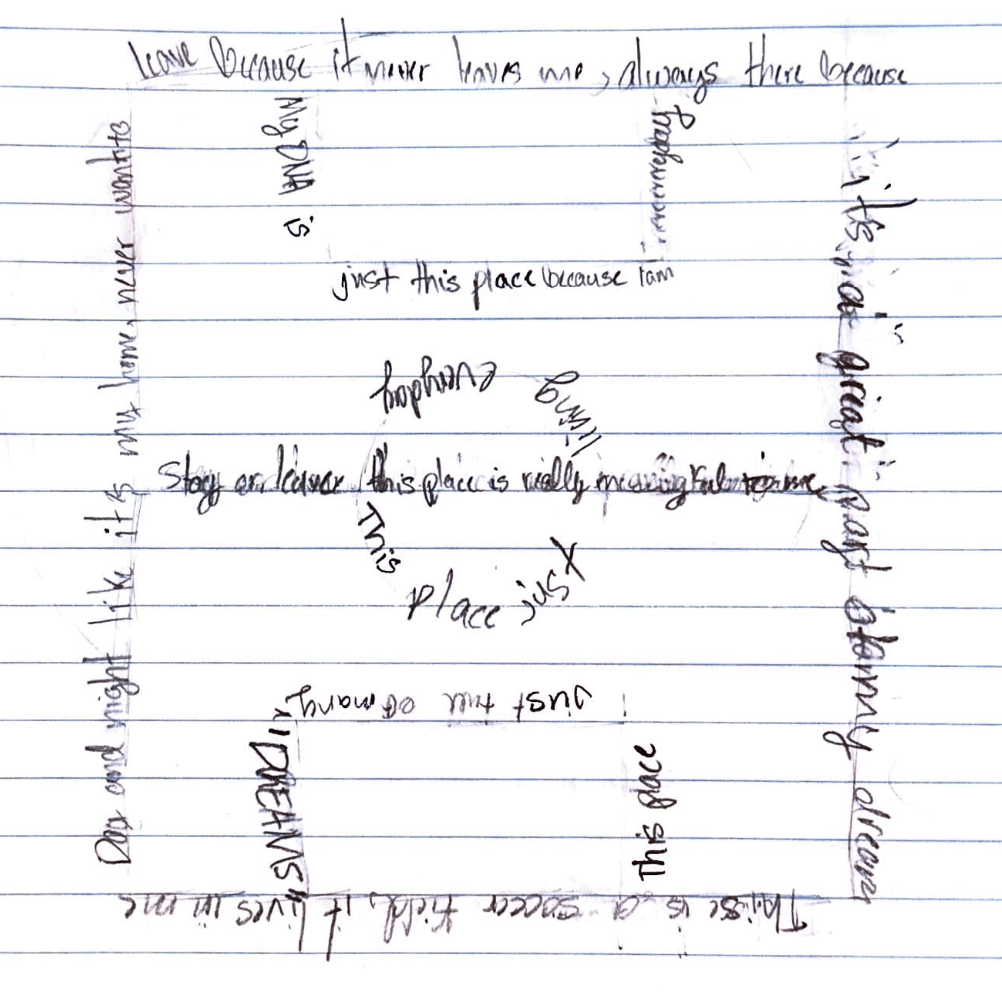 This is a soccer field, it lives in me
Day and night like it's my home, never wants to
leave because it never leaves me, always there because
it's a great part of my dream
My DNA is
just this place because I am
happy
everyday
living
Stay or leave this place is really meaningful to me
This
place just
Just full of many
"DREAMS"
This place